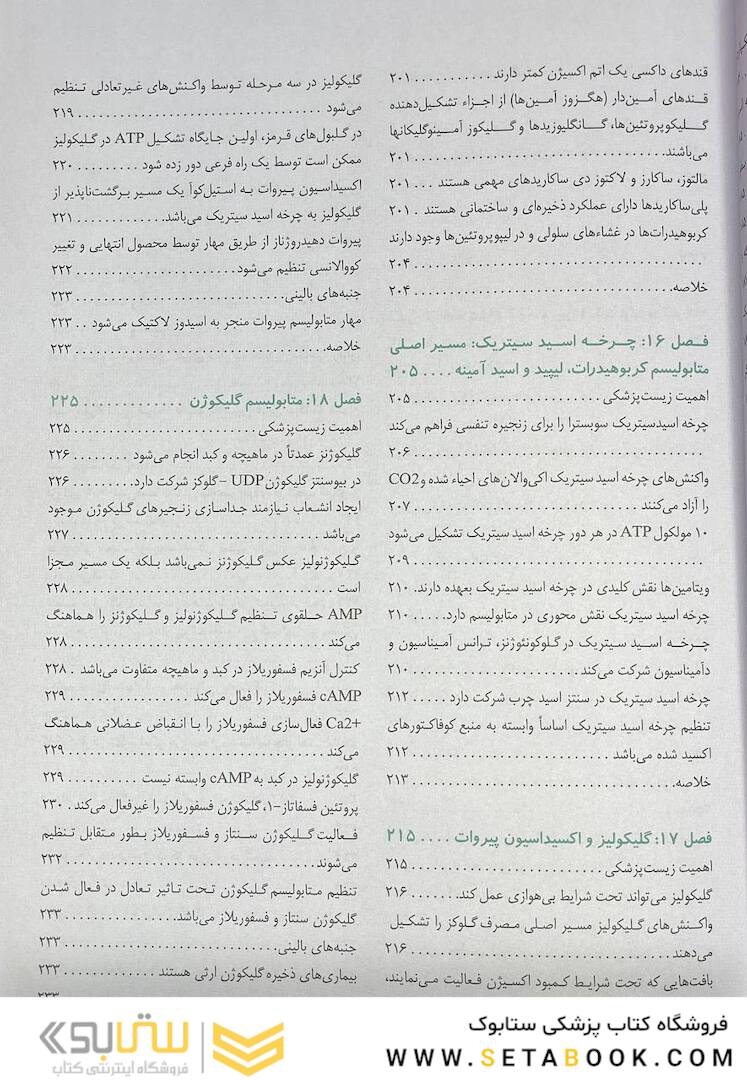 قندهای داکسی یک اتم اکسیژن کمتر دارند ........... ۲۰۱
قندهای آمین‌دار (هگزوز آمین‌ها) از اجزاء تشکیل‌دهنده
گلیکوپروتئین‌ها، گانگلیوزیدها و گلیکوز آمینوگلیکانها
می‌باشند................................ ۲۰۱
مالتوز، ساکارز و لاکتوز دی ساکاریدهای مهمی هستند ... ۲۰۱
پلی‌ساکاریدها دارای عملکرد ذخیره‌ای و ساختمانی هستند . ۲۰۱
کربوهیدرات‌ها در غشاءهای سلولی و در لیپوپروتئین‌ها وجود دارند
................................ ۲۰۴
خلاصه................................ ۲۰۴
فصل ۱۶: چرخه اسید سیتریک: مسیر اصلی
متابولیسم کربوهیدرات، لیپید و اسید آمینه .... ۲۰۵
اهمیت زیست‌پزشکی ........................ ۲۰۵
چرخه اسیدسیتریک سوبسترا را برای زنجیره تنفسی فراهم می‌کند
................................ ۲۰۶
واکنش‌های چرخه اسید سیتریک اکی‌والان‌های احیاء شده و CO2
را آزاد می‌کنند ........................ ۲۰۷
۱۰ مولکول ATP در هر دور چرخه اسید سیتریک تشکیل می‌شود
................................ ۲۰۹
ویتامین‌ها نقش کلیدی در چرخه اسید سیتریک بعهده دارند. ۲۱۰
چرخه اسید سیتریک نقش محوری در متابولیسم دارد..... ۲۱۰
چرخه اسید سیتریک در گلوکونئوژنز، ترانس آمیناسیون و
دآمیناسیون شرکت می‌کند .................... ۲۱۰
چرخه اسید سیتریک در سنتز اسید چرب شرکت دارد ..... ۲۱۲
تنظیم چرخه اسید سیتریک اساساً وابسته به منبع کوفاکتورهای
اکسید شده می‌باشد ........................ ۲۱۲
خلاصه................................ ۲۱۳
فصل ۱۷: گلیکولیز و اکسیداسیون پیروات .... ۲۱۵
اهمیت زیست‌پزشکی ........................ ۲۱۵
گلیکولیز می‌تواند تحت شرایط بی‌هوازی عمل کند....... ۲۱۶
واکنش‌های گلیکولیز مسیر اصلی مصرف گلوکز را تشکیل
می‌دهند................................ ۲۱۶
بافت‌هایی که تحت شرایط کمبود اکسیژن فعالیت می‌نمایند،
گلیکولیز در سه مرحله توسط واکنش‌های غیرتعادلی تنظیم
می‌شود ................................ ۲۱۹
در گلبول‌های قرمز، اولین جایگاه تشکیل ATP در گلیکولیز
ممکن است توسط یک راه فرعی دور زده شود ......... ۲۲۰
اکسیداسیون پیروات به استیل‌کوآ یک مسیر برگشت‌ناپذیر از
گلیکولیز به چرخه اسید سیتریک می‌باشد............. ۲۲۱
پیروات دهیدروژناز از طریق مهار توسط محصول انتهایی و تغییر
کووالانسی تنظیم می‌شود ..................... ۲۲۲
جنبه‌های بالینی............................ ۲۲۳
مهار متابولیسم پیروات منجر به اسیدوز لاکتیک می‌شود .. ۲۲۳
خلاصه................................ ۲۲۳
فصل ۱۸: متابولیسم گلیکوژن ............. ۲۲۵
اهمیت زیست‌پزشکی ........................ ۲۲۵
گلیکوژنز عمدتاً در ماهیچه و کبد انجام می‌شود ........ ۲۲۶
در بیوسنتز گلیکوژن UDP –گلوکز شرکت دارد......... ۲۲۶
ایجاد انشعاب نیازمند جداسازی زنجیرهای گلیکوژن موجود
می‌باشد ................................ ۲۲۷
گلیکوژنولیز عکس گلیکوژنز نمی‌باشد بلکه یک مسیر مجزا
است ................................ ۲۲۸
AMP حلقوی تنظیم گلیکوژنولیز و گلیکوژنز را هماهنگ
می‌کند ................................ ۲۲۸
کنترل آنزیم فسفوریلاز در کبد و ماهیچه متفاوت می‌باشد . ۲۲۸
cAMP فسفوریلاز را فعال می‌کند ................ ۲۲۹
Ca2+ فعال‌سازی فسفوریلاز را با انقباض عضلانی هماهنگ
می‌کند ................................ ۲۲۹
گلیکوژنولیز در کبد به cAMP وابسته نیست .......... ۲۲۹
پروتئین فسفاتاز-۱، گلیکوژن فسفوریلاز را غیرفعال می‌کند . ۲۳۰
فعالیت گلیکوژن سنتاز و فسفوریلاز بطور متقابل تنظیم
می‌شوند................................ ۲۳۲
تنظیم متابولیسم گلیکوژن تحت تاثیر تعادل در فعال شدن
گلیکوژن سنتاز و فسفوریلاز می‌باشد............... ۲۳۳
جنبه‌های بالینی............................ ۲۳۳
بیماری‌های ذخیره گلیکوژن ارثی هستند ............. ۲۳۳
۲۳۳
فروشگاه کتاب پزشکی ستابوک
WWW.SETABOOK.COM
ستابوک
فروشگاه اینترنتی کتاب